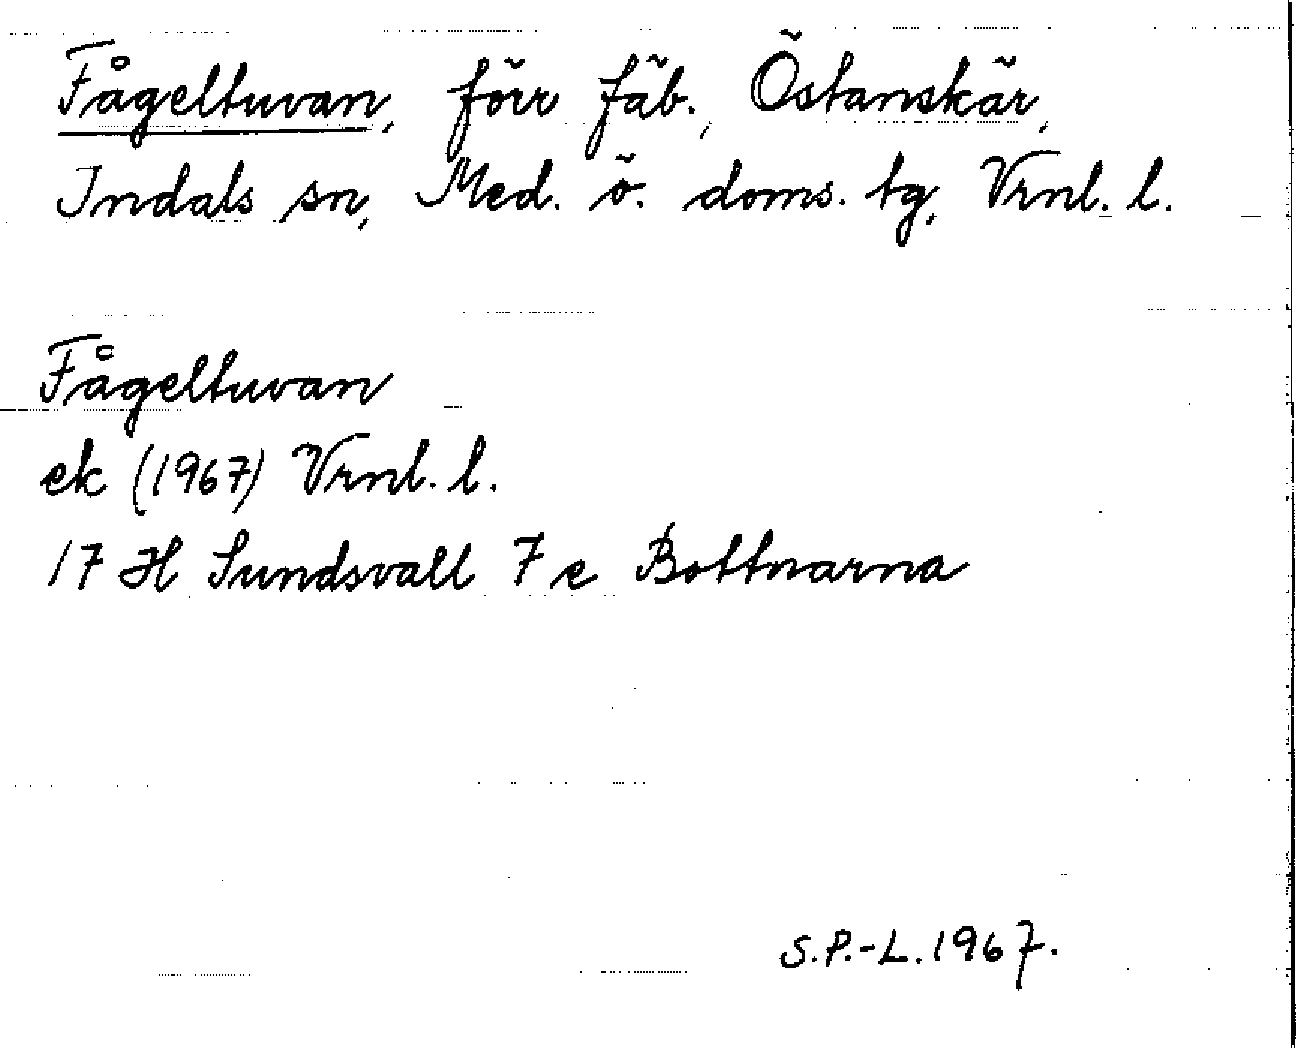 Fågeltuvan, förr fäb., Östanskär,
Indals sn, Med. ö. doms. tg, Vrnl. l.
Fågeltuvan
ek (1967) Vrnl. l.
17 H Sundsvall 7 e Bottnarna
S.P.-L. 1967.